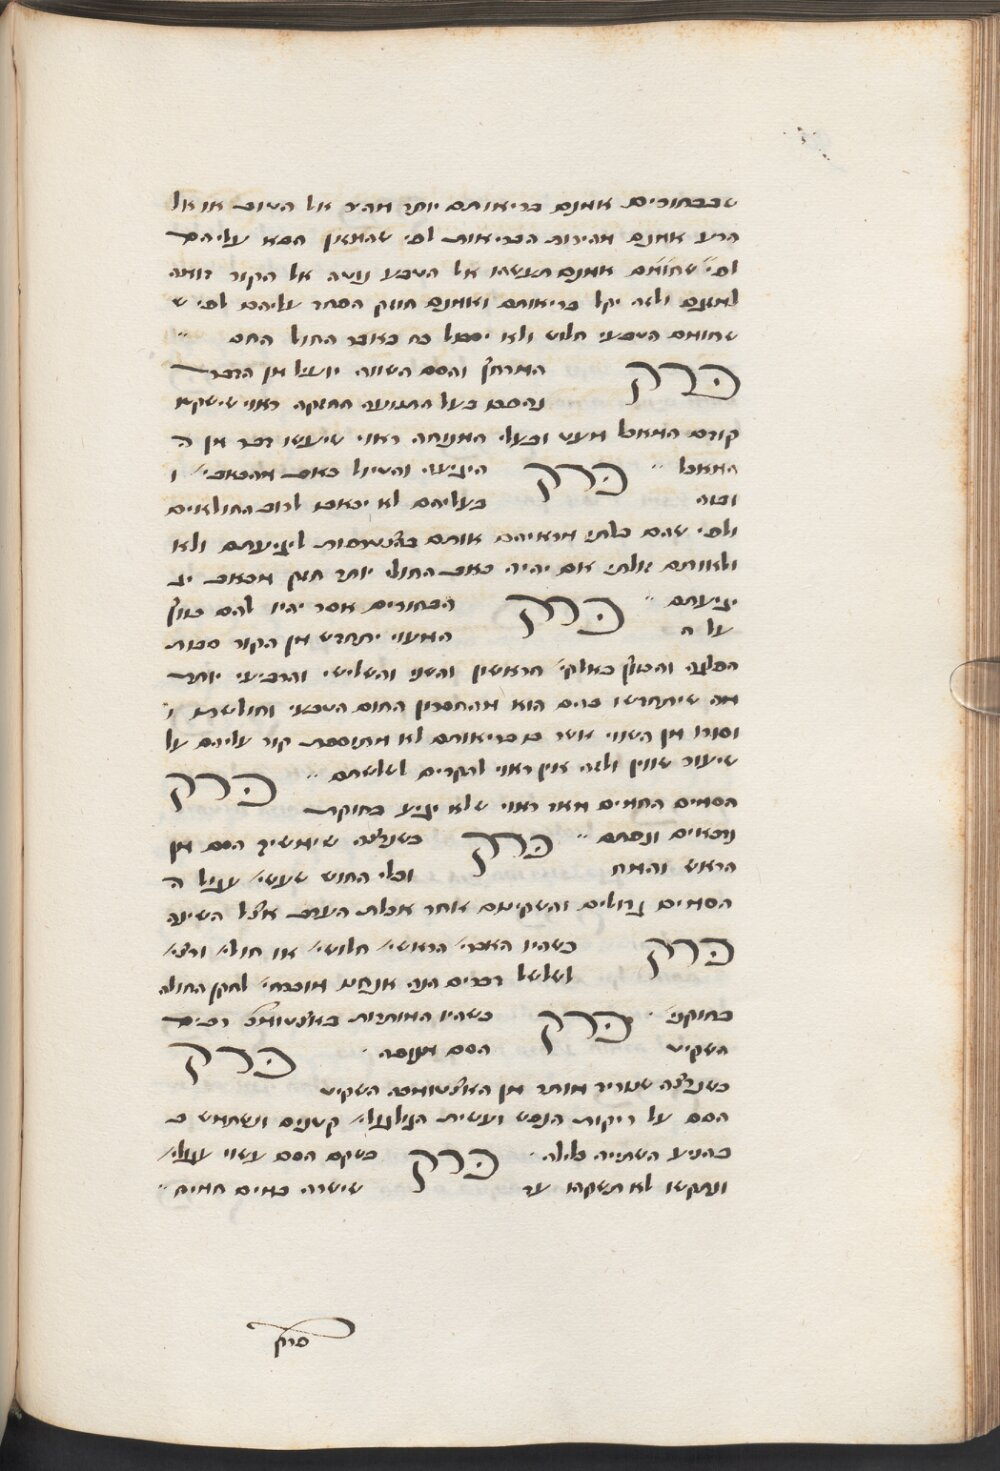 שבבחורים אמנם בריאותם יותר מהיר אל הטוב או אל
הרע אמנם מהירות הבריאות לפי שהמאזן הסא עליהם
לפי שחומם אמנם תעשהו אל הטבע נוטה אל הקור דומה
למזגם ולזה יקל בריאותם ואמנם חוזק הסתר עליהם לפי ש
שחומם הטבעי חלוש ולא יסבול כח כאב החולי החם
פרק המרחץ והסם השווה יועיל מן הדבר
נהסם בעל התנועה החזקה ראוי שישקה
קודם המאכל מעט ובעלי המנוחה ראוי שיעשו דבר מן ה
המאכל פרק היגיעה והטיול כאב מהכאבי׳ ו
ובזה בעליהם לא יכאבו לרוב החולאים
ולפי שהם בלתי מראיהם אותם בהצטרפות ליגיעתם ולא
ולאותם אולתי אם יהיה כאב החולי יותר חזק מכאב יג
יגיעתם פרק הבחורים אשר יהיו להם בטן
על ה המעוי יתחדש מן הקור סבות
הפלגה והבטן באלקי׳ הראשון והשני והשלישי והרביעי יותר
מה שיתחדשו בהם הוא מהחסרון החום הטבעי וחולשתו ו
וסורו מן השווי אשר בו בריאותם לא מתוספת קור עליהם על
שיעור שווין ולזה אין ראוי להקרים לשלשתם פרק
הסמים החמים מאד ראוי שלא יגיע בחוקת
נרפאים ונסתם פרק כשנרצה שימשיך הסם מן
הראש והמח וכלי החוש שעשי׳ עגול ה
הסמים גדולים והשקיתם אחר אכלת הערב אצל השינה
פרק כשהיו האברי׳ הראשי׳ חלושי׳ או חולי׳ ורצי׳
לשלשל דברים הנה אנחנו מוכרחי׳ לתקן החולה
בחוקני׳ פרק כשהיו המותרות באצטומכ׳ רבים
השקיע הסם מנוסה פרק
כשנרצה שנוריד מותר מן האצטומכה השקיע
הסם על ריקות הנפש ועשית הגולגולי׳ קטנים ונשתמש ב
בהניע השתייה כלילה פרק כשקם הסם עשוי עגולי׳
ונתקשו לא תשקהו עד שישרה במים חמים
פרק